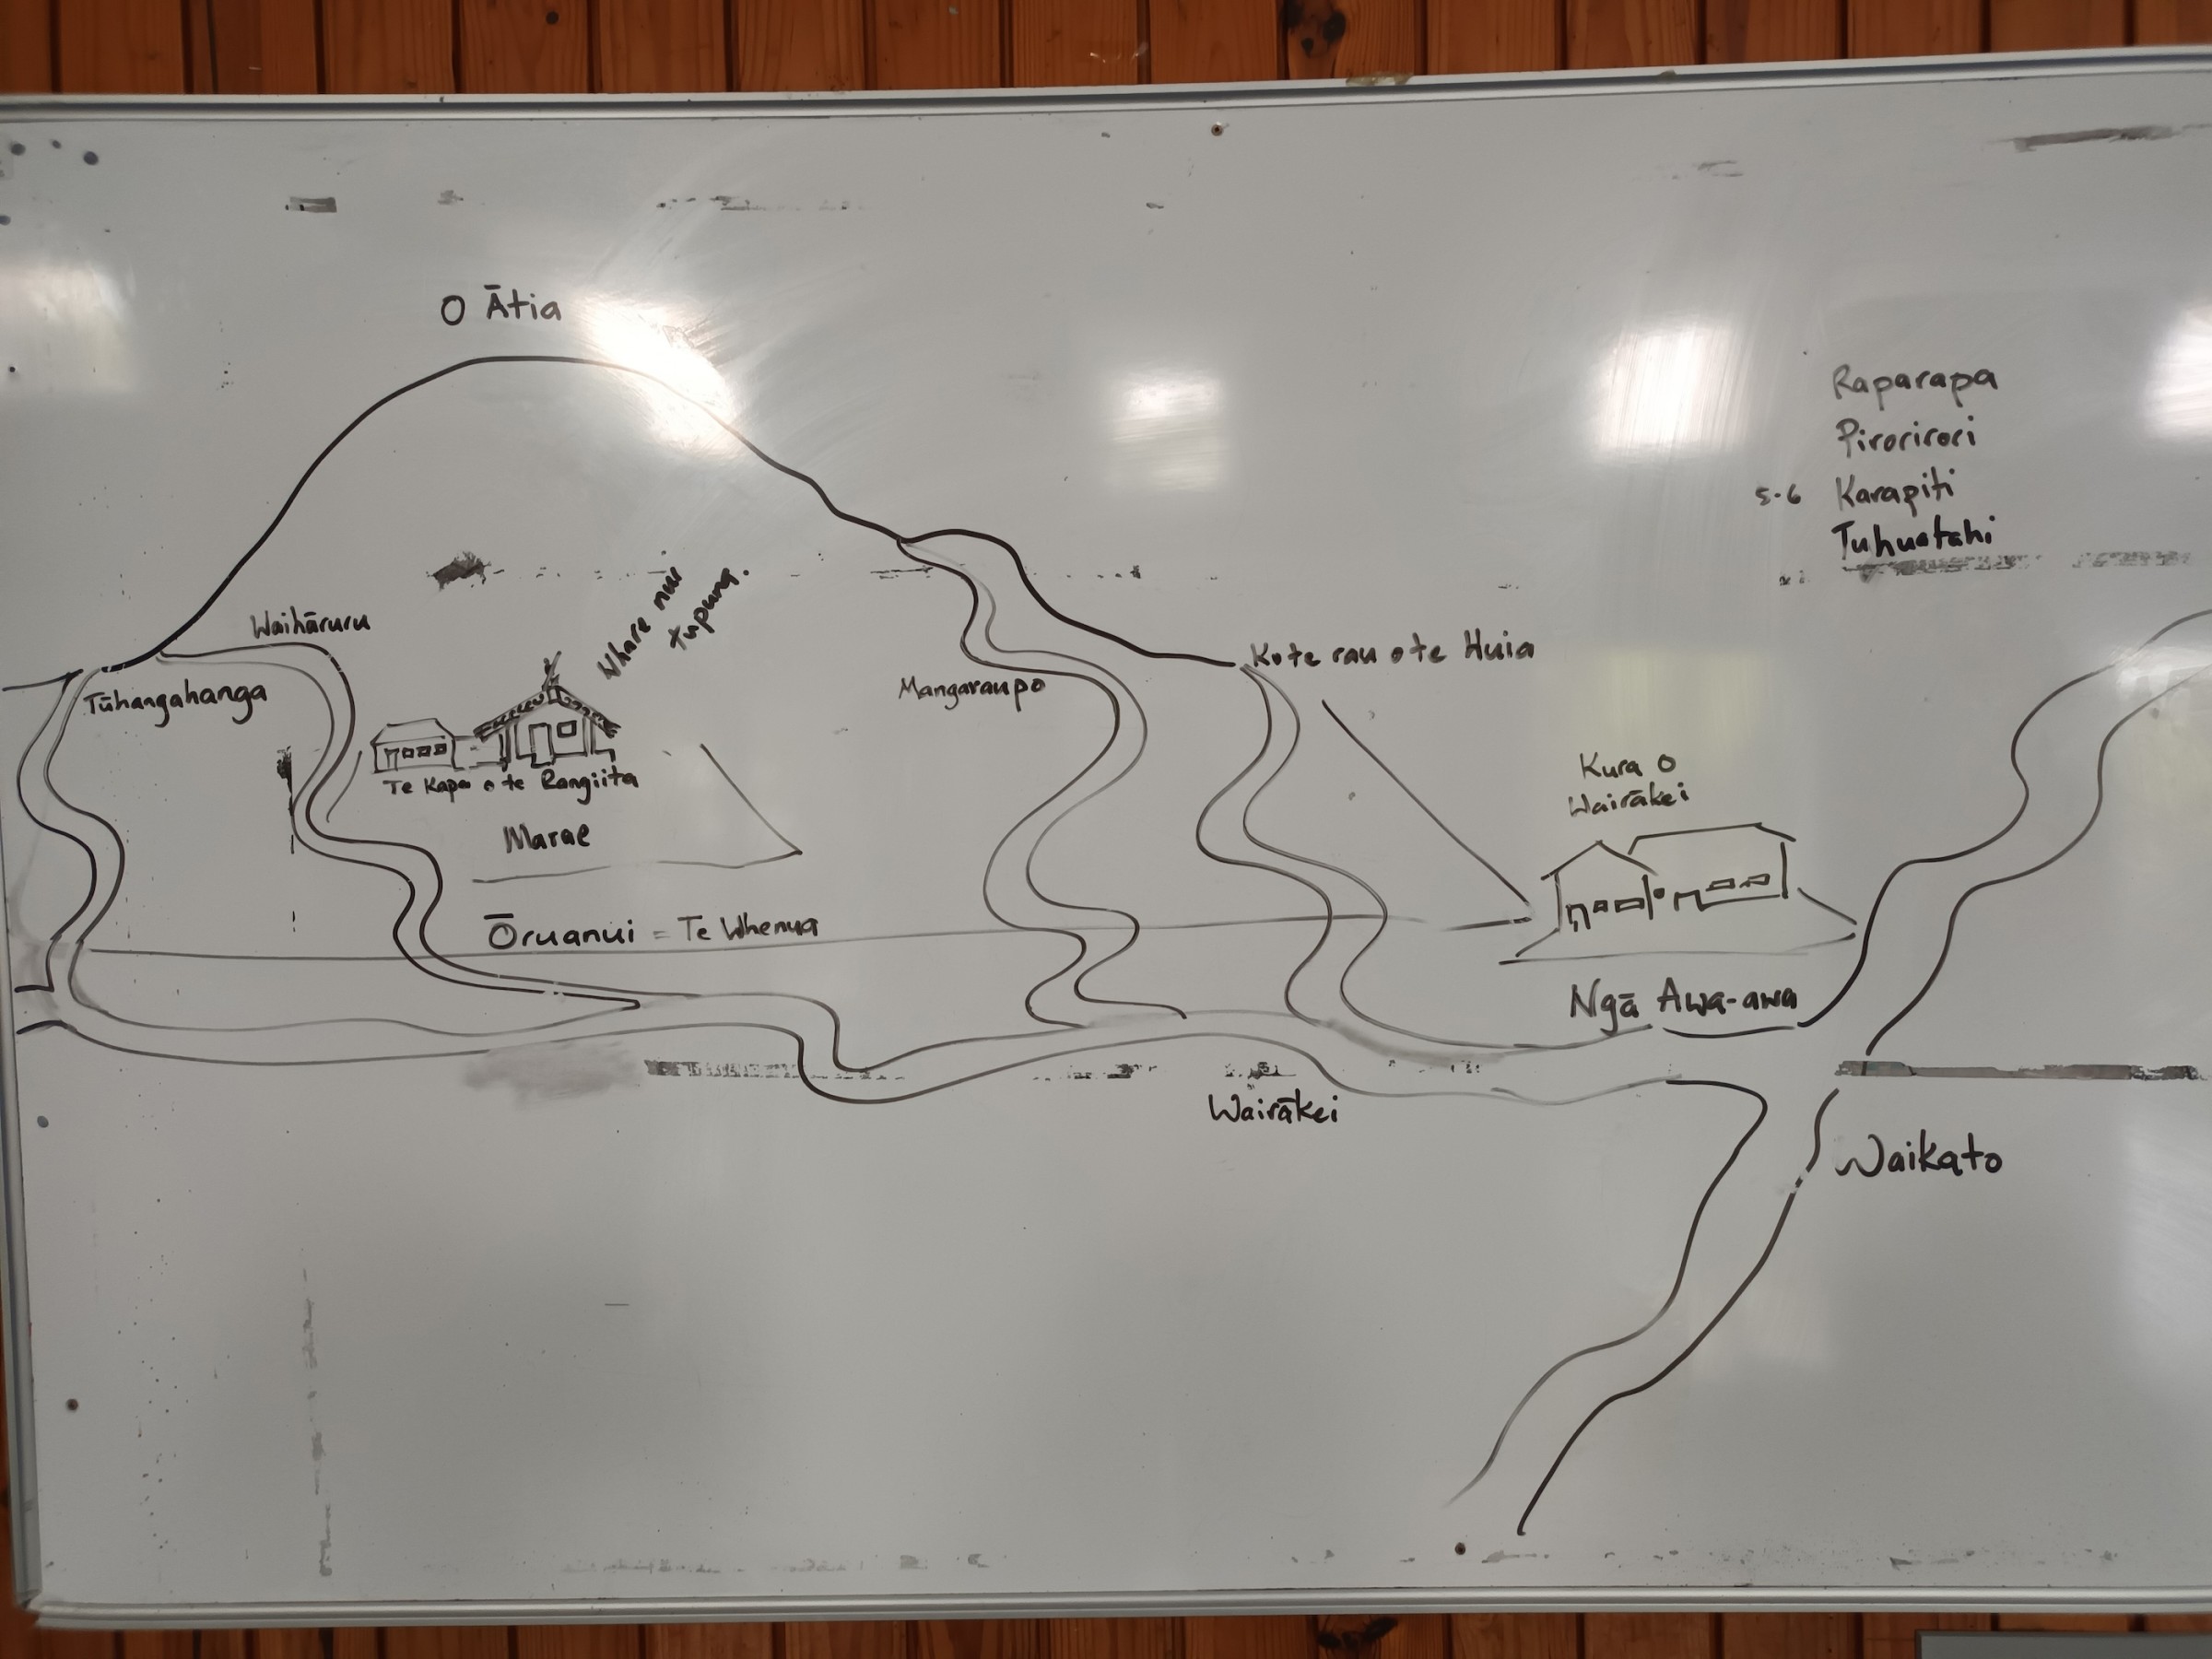 O Ātia
Raparapa
Pirorirori
5-6 Karapiti
Tuhuatahi
Waihāruru
Whare nui
tupuna.
Tūhangahanga
Mangaraupo
Ko te rau o te Huia
Te Kapa o te Rangiita
Marae
Kura O
Wairākei
Ōruanui = Te Whenua
Ngā Awa-awa
Wairākei
Waikato